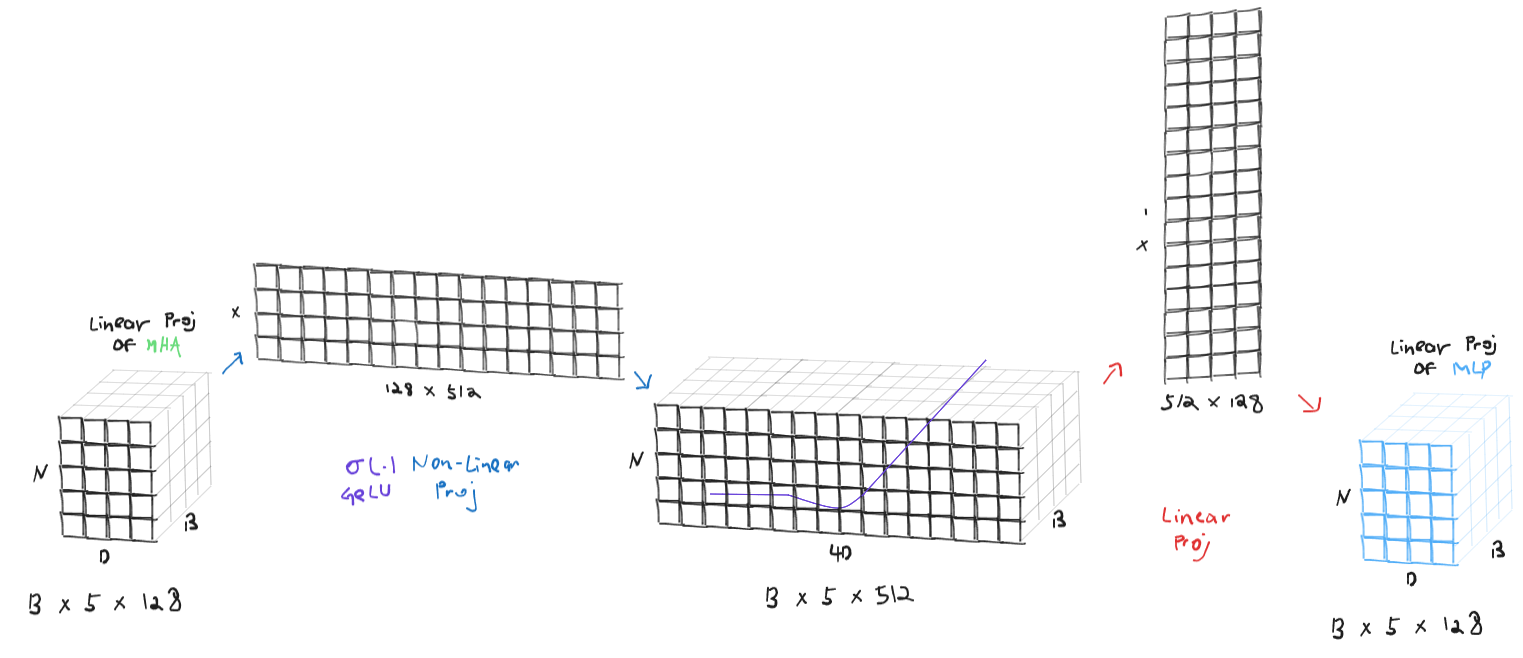 Linear Proj
OF MHA
N
B
D
B x 5 x 128
x
128 x 512
σ(.) Non-Linear
GeLU Proj
N
B
4D
B x 5 x 512
x
512 x 128
Linear
Proj
Linear Proj
OF MLP
N
B
D
B x 5 x 128